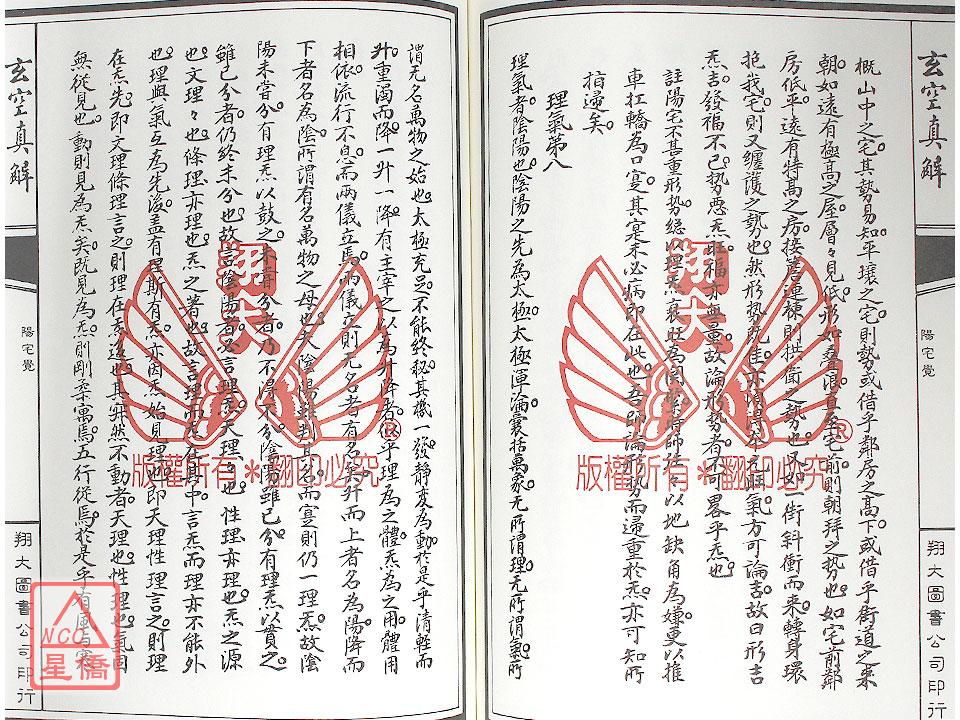 玄空真解
陽宅覺
翔大圖書公司印行
概山中之宅其勢易知平壤之宅則勢或借乎鄰房之高下或借乎街道之來
朝如遠有極高之屋層々見低形如叠浪直至宅前則朝拜之勢也如宅前鄰
房低平遠有特髙之房接簷連棟則拱衛之勢也又如一街斜衝而來轉身環
抱我宅則又纏護之勢也然形勢既佳亦須得元旺氣方可論吉故曰形吉
炁吉發福不已勢惡炁旺福亦無量故論形勢者不可畧乎炁也
註陽宅不甚重形勢總以理炁衰旺為関時師往々以地缺角為嫌更以推
車扛轎為口寔其寔未必病即在此也吾師論形勢而歸重於炁亦可知所
指歸矣
理氣第八
理氣者陰陽也陰陽之先為太極太極渾淪囊括萬象无所謂理无所謂氣所
謂无名萬物之始也太極充足不能終秘其機一發靜変為動於是乎清輕而
升重濁而降一升一降有主宰之以為升降者乎理為之體炁為之用體用
相依流行不息而兩儀立焉兩儀立則无名者有名矣升而上者名為陽降而
下者名為陰所謂有名萬物之母也夫陰陽其名而寔則仍一理炁故陰
陽未嘗分有理炁以鼓之未嘗分者乃不得不分陰陽雖已分有理炁以貫之
雖已分者仍終未分也故言陰陽者必言理炁夫理也性理亦理也炁之源
也文理々也條理亦理也炁之著也故言理而炁在其中言炁而理亦不能外
也理與氣互為先後盖有理斯有炁亦因炁始見理也即天理性理言之則理
在炁先即文理條理言之則理在炁後也其寂然不動者天理也性理也氣固
無從見也動則見為炁矣既見為炁則剛柔寓焉五行從焉於是乎有風与寒
玄空真解
陽宅覺
翔大圖書公司印行
翔大
®
版權所有＊翻印必究
翔大
®
版權所有＊翻印必究
NCC
星僑